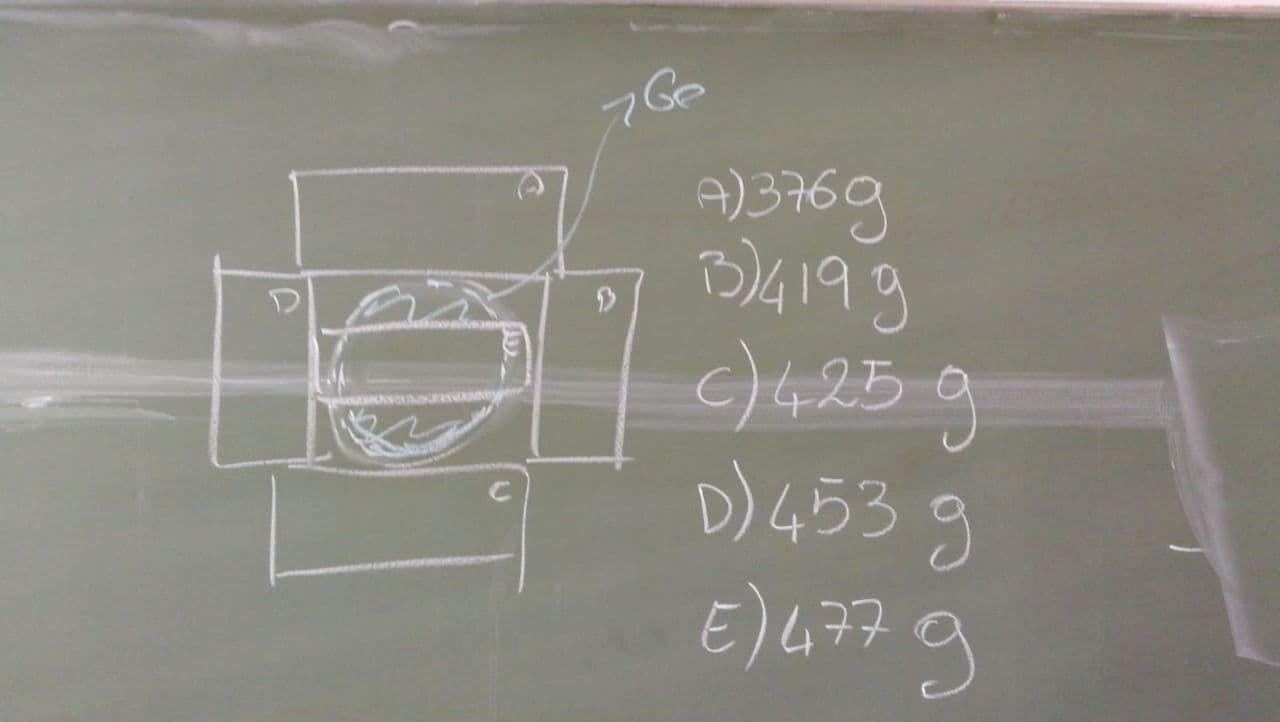 Ge
A
D
B
E
C
A) 376 g
B) 419 g
C) 425 g
D) 453 g
E) 477 g